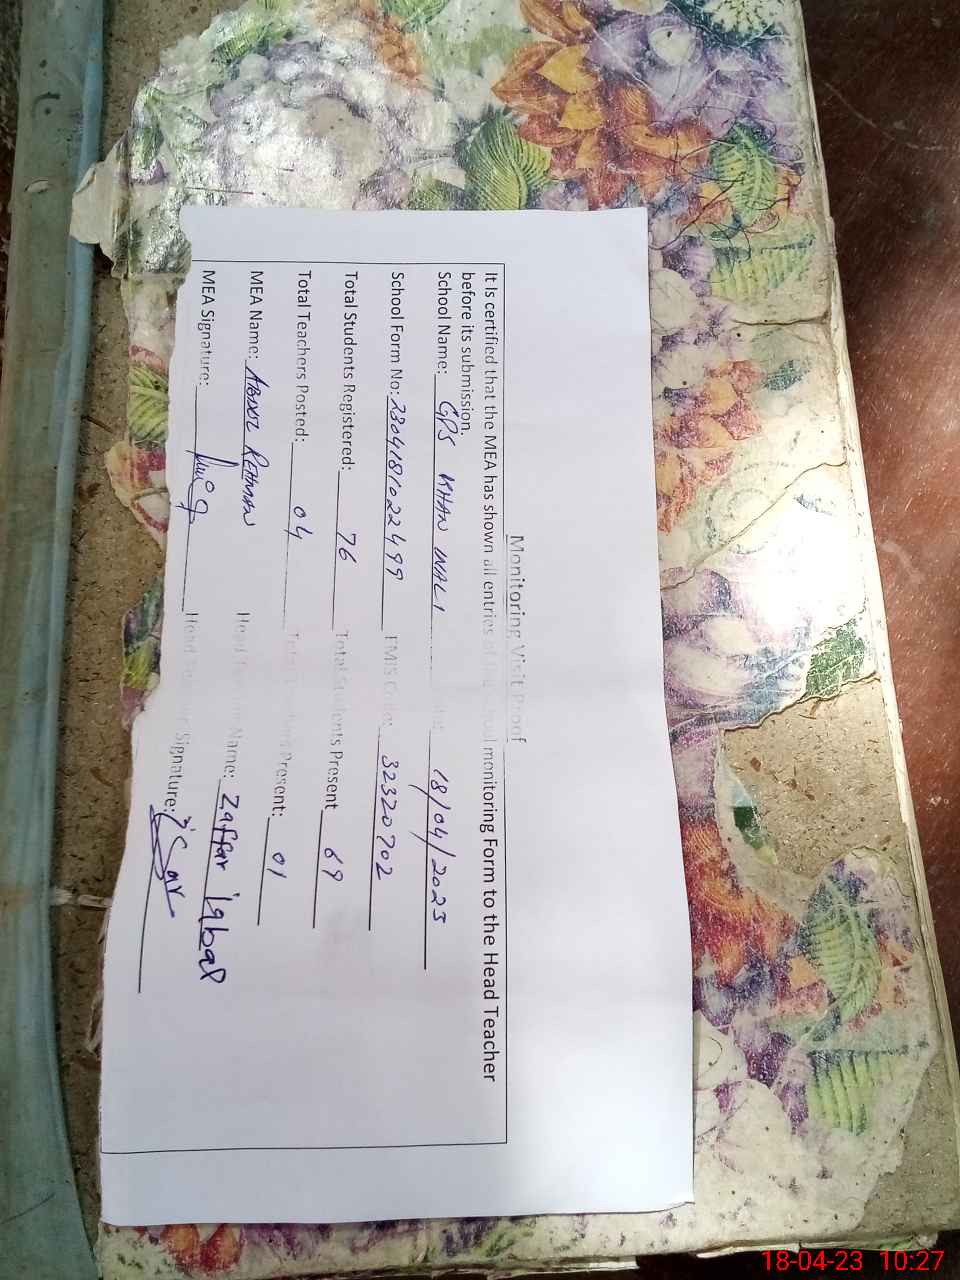 Monitoring Visit Proof
It Is certified that the MEA has shown all entries of monitoring Form to the Head Teacher
before its submission.
School Name: GPS KHAN WALI 18/04/2023
School Form No: 2304181022499 EMIS Code: 32320702
Total Students Registered: 76 Total Students Present 69
Total Teachers Posted: 04 Present: 01
MEA Name: ABDUL REHMAN Name: Zaffar iqbal
MEA Signature: Head Signature:
18-04-23 10:27